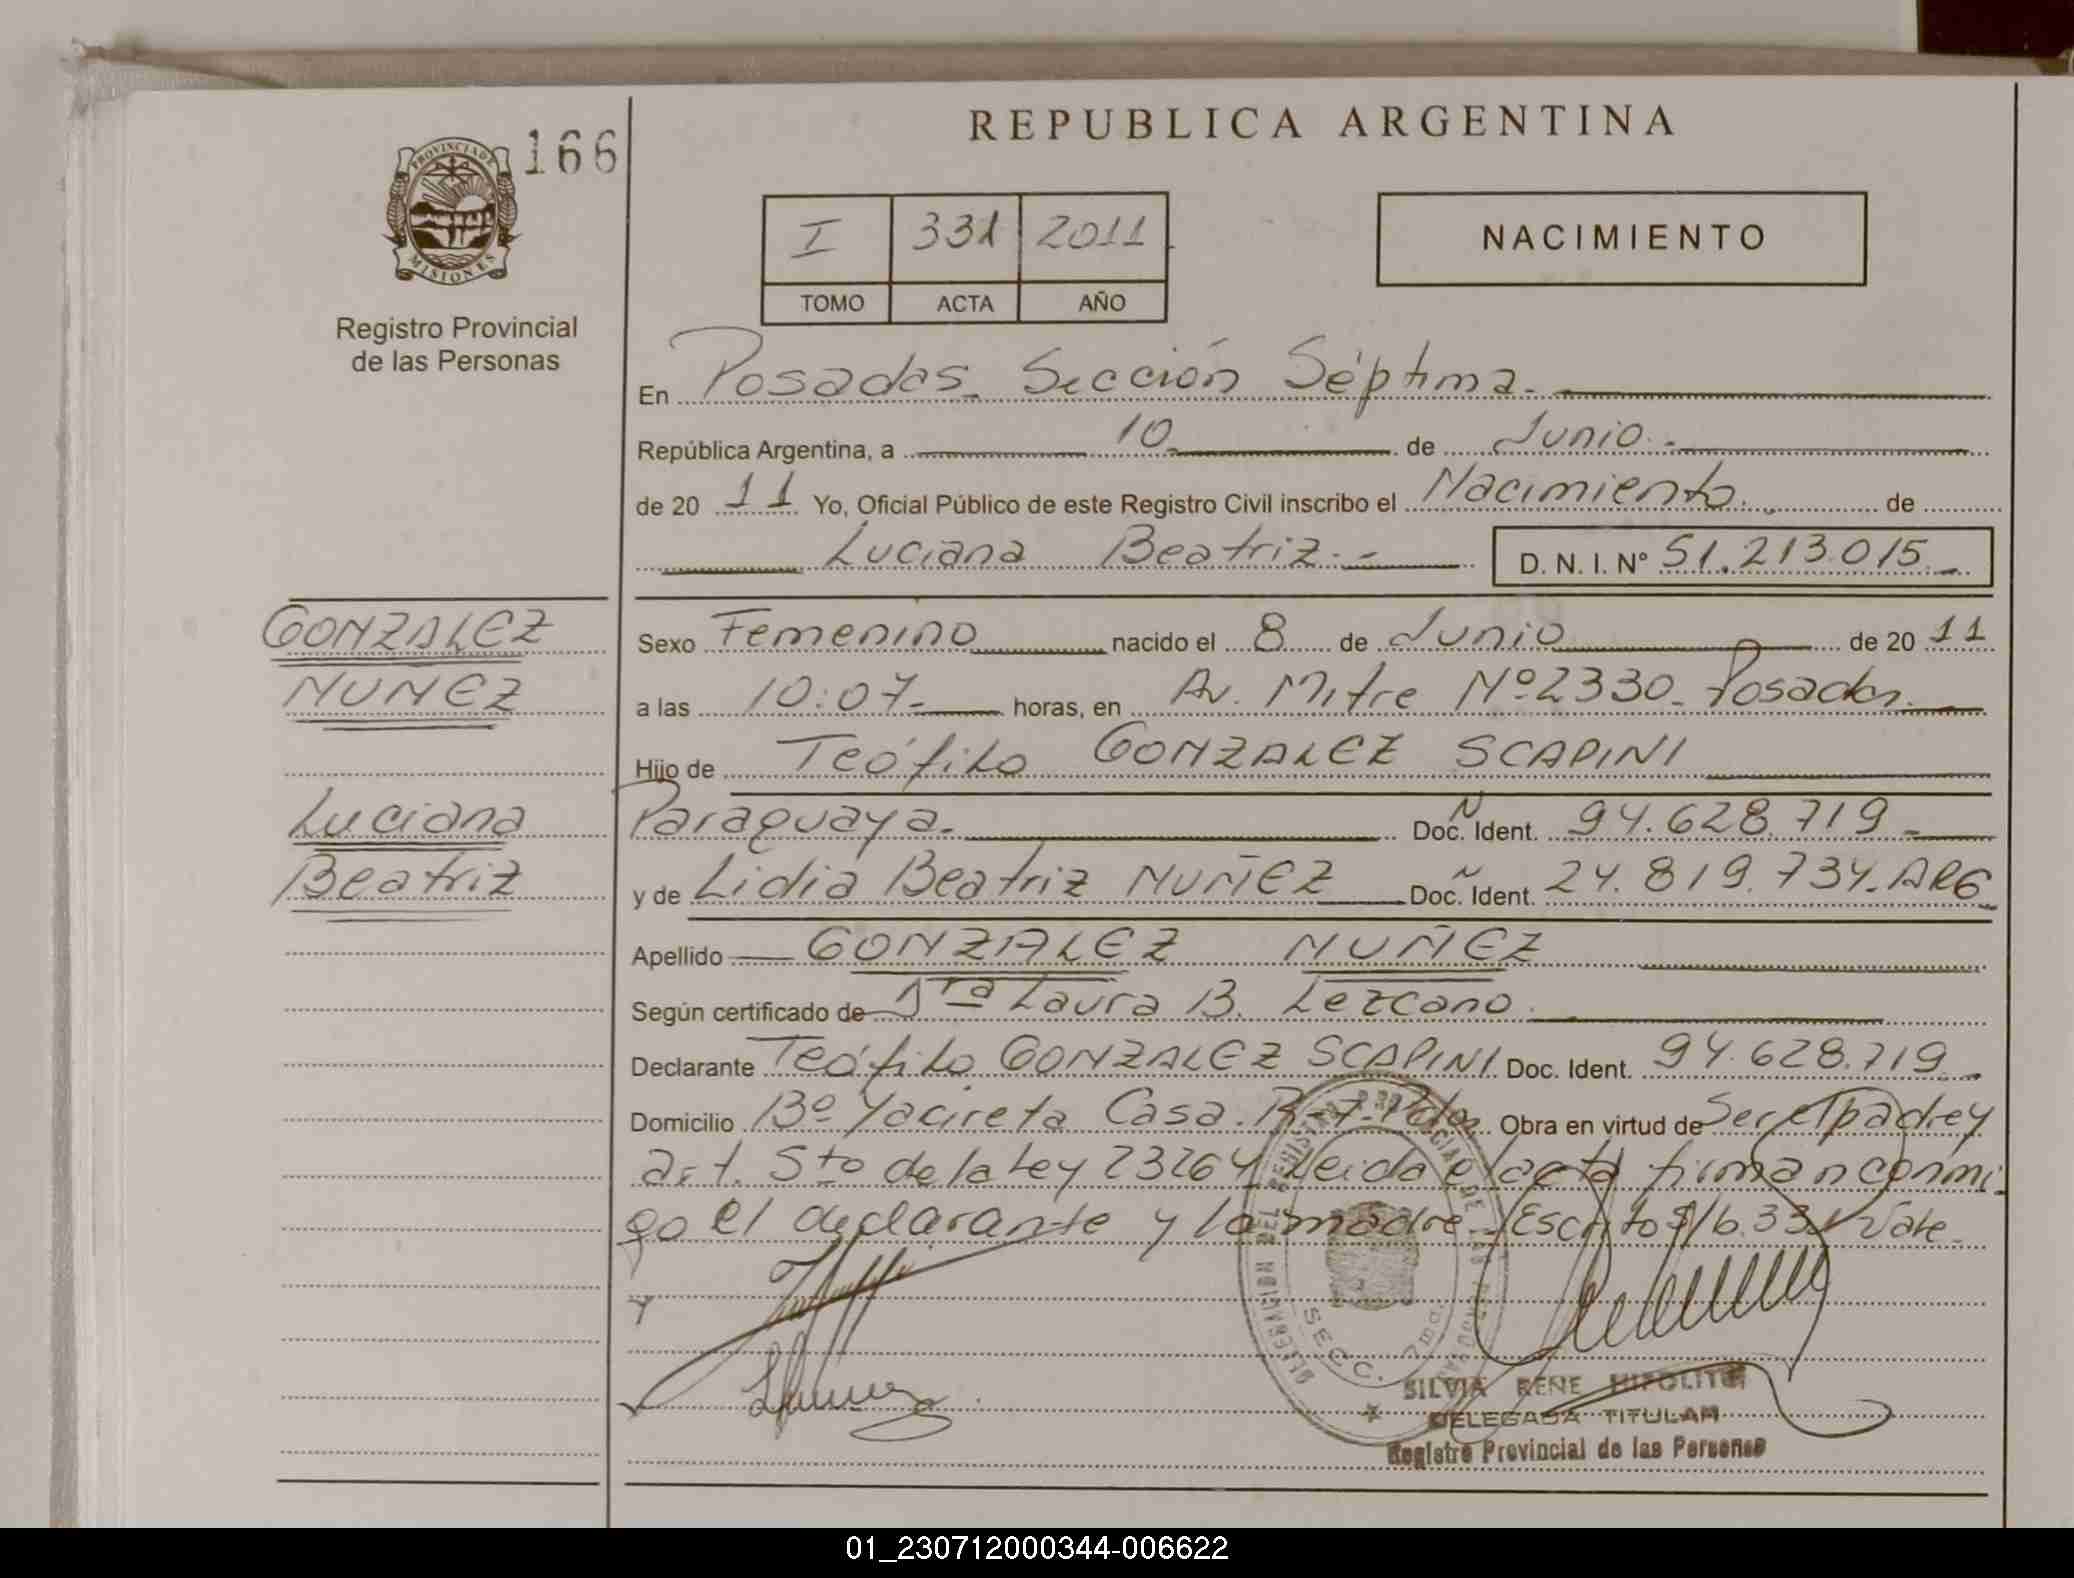 REPUBLICA ARGENTINA
166
PROVINCIA DE
MISIONES
Registro Provincial
de las Personas
I 331 2011
TOMO ACTA AÑO
NACIMIENTO
En Posadas Sección Séptima
República Argentina, a 10 de Junio
de 20 11 Yo, Oficial Público de este Registro Civil inscribo el Nacimiento de
Luciana Beatriz D. N. I. Nº 51.213.015
GONZALEZ
NUÑEZ
Luciana
Beatriz
Sexo Femenino nacido el 8 de Junio de 20 11
a las 10:07 horas, en Av. Mitre Nº 2330 Posadas
Hijo de Teófilo GONZALEZ SCAPINI
Paraguaya Doc. Ident. 94.628.719
y de Lidia Beatriz NUÑEZ Doc. Ident. 24.819.734 ARG
Apellido GONZALEZ NUÑEZ
Según certificado de Dra Laura B. Lezcano
Declarante Teófilo GONZALEZ SCAPINI Doc. Ident. 94.628.719
Domicilio Bº Yacireta Casa R-7 Pdas Obra en virtud de Ser el padre y
art. 5to de la Ley 23264 Leida el acta firman conmi
go el declarante y la madre Escrito s/b. 331 Vale
SECC. 7ma.
SILVIA RENE HIPOLITO
DELEGADA TITULAR
Registro Provincial de las Personas
01_230712000344-006622